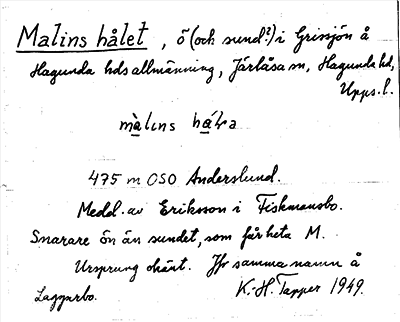 Malins hålet, ö (och sund?) i Grissjön å
Hagunda hds allmänning, Järlåsa sn, Hagunda hd,
Upps. l.
màlins hå̀lra
475 m OSO Anderslund.
Medd. av Eriksson i Fiskmansbo.
Snarare ön än sundet, som får heta M.
Ursprung okänt. Jfr samma namn å
Laggarbo.
K.-H. Tapper 1949.